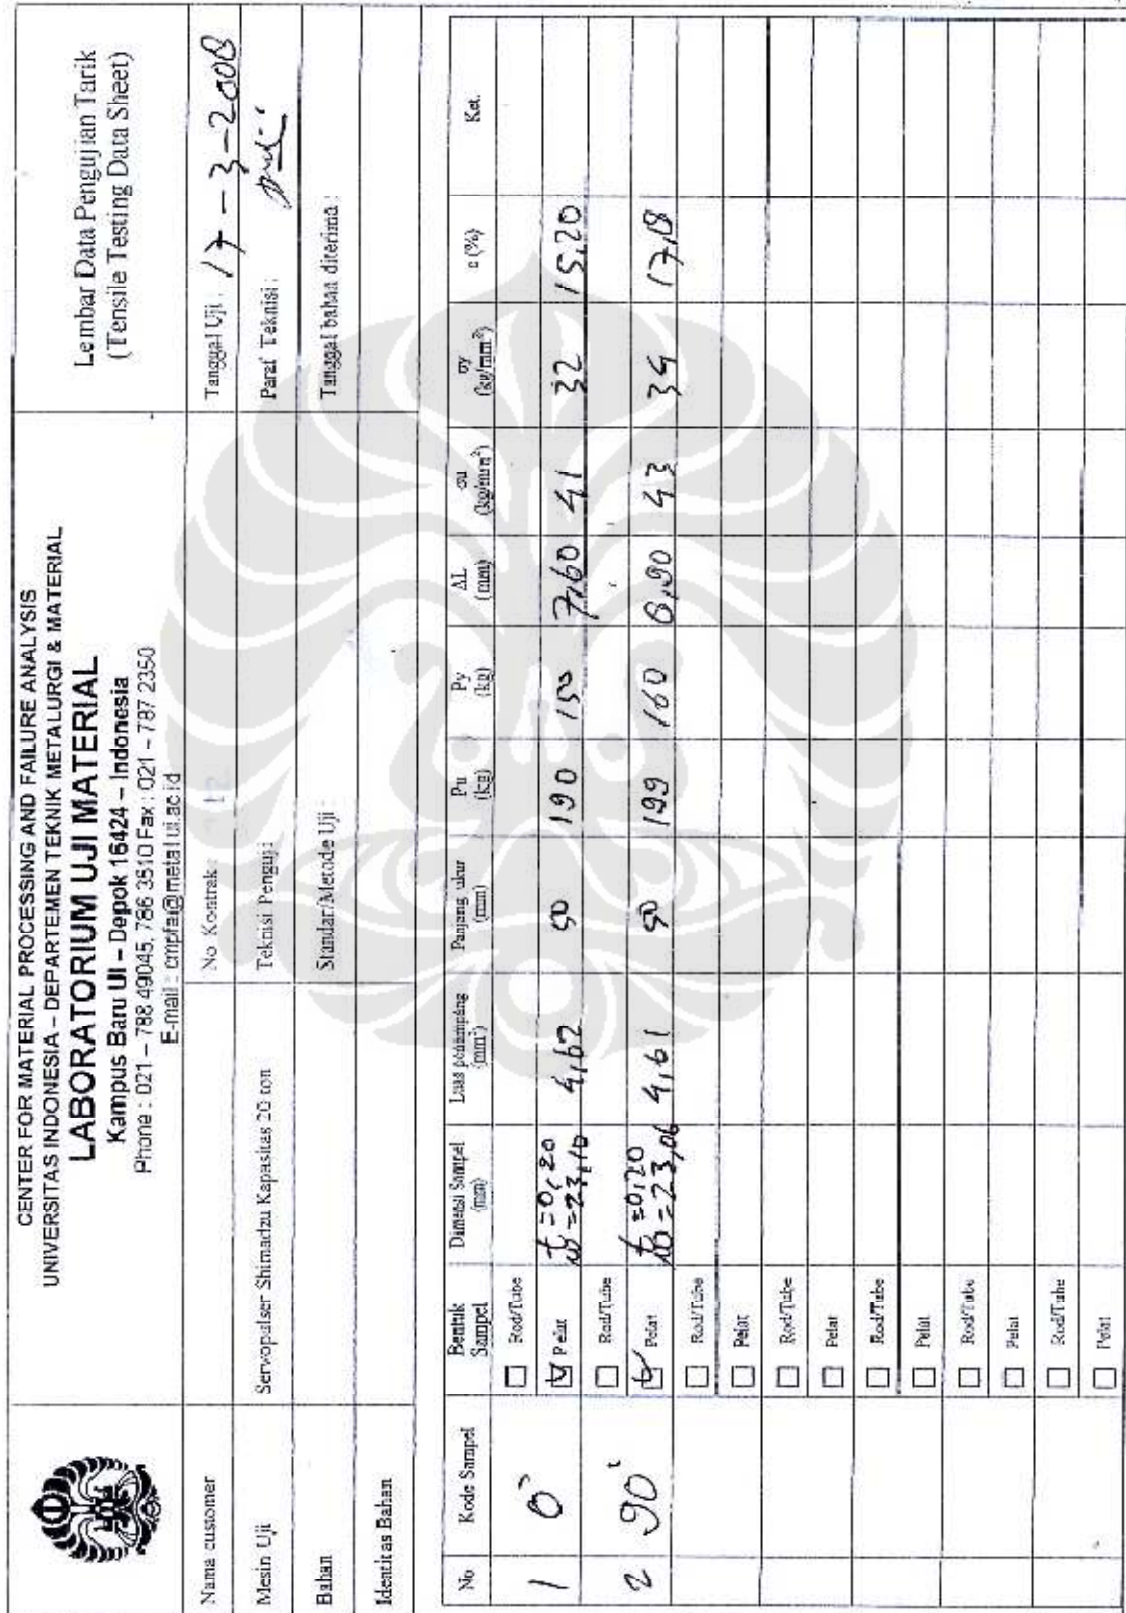 CENTER FOR MATERIAL PROCESSING AND FAILURE ANALYSIS
UNIVERSITAS INDONESIA – DEPARTEMEN TEKNIK METALURGI & MATERIAL
LABORATORIUM UJI MATERIAL
Kampus Baru UI – Depok 16424 – Indonesia
Phone : 021 – 788 49045, 786 3510 Fax : 021 – 787 2350
E-mail : cmpfa@metal.ui.ac.id
Lembar Data Pengujian Tarik
(Tensile Testing Data Sheet)
Nama customer
No Kontrak
Tanggal Uji : 17-3-2008
Mesin Uji
Servopulser Shimadzu Kapasitas 20 ton
Teknisi Penguji
Paraf Teknisi :
Bahan
Standar/Metode Uji
Tanggal bahan diterima :
Identitas Bahan
No
Kode Sampel
Bentuk
Sampel
Dimensi Sampel
(mm)
Luas penampang
(mm²)
Panjang ukur
(mm)
Pu
(kg)
Py
(kg)
ΔL
(mm)
σu
(kg/mm²)
σy
(kg/mm²)
ε (%)
Ket.
Rod/Tube
1 0° Pelat t = 0,20 w = 23,10 4,62 50 190 150 7,60 41 32 15,20
Rod/Tube
2 90° Pelat t = 0,20 w = 23,06 4,61 50 199 160 8,90 43 34 17,8
Rod/Tube
Pelat
Rod/Tube
Pelat
Rod/Tube
Pelat
Rod/Tube
Pelat
Rod/Tube
Pelat